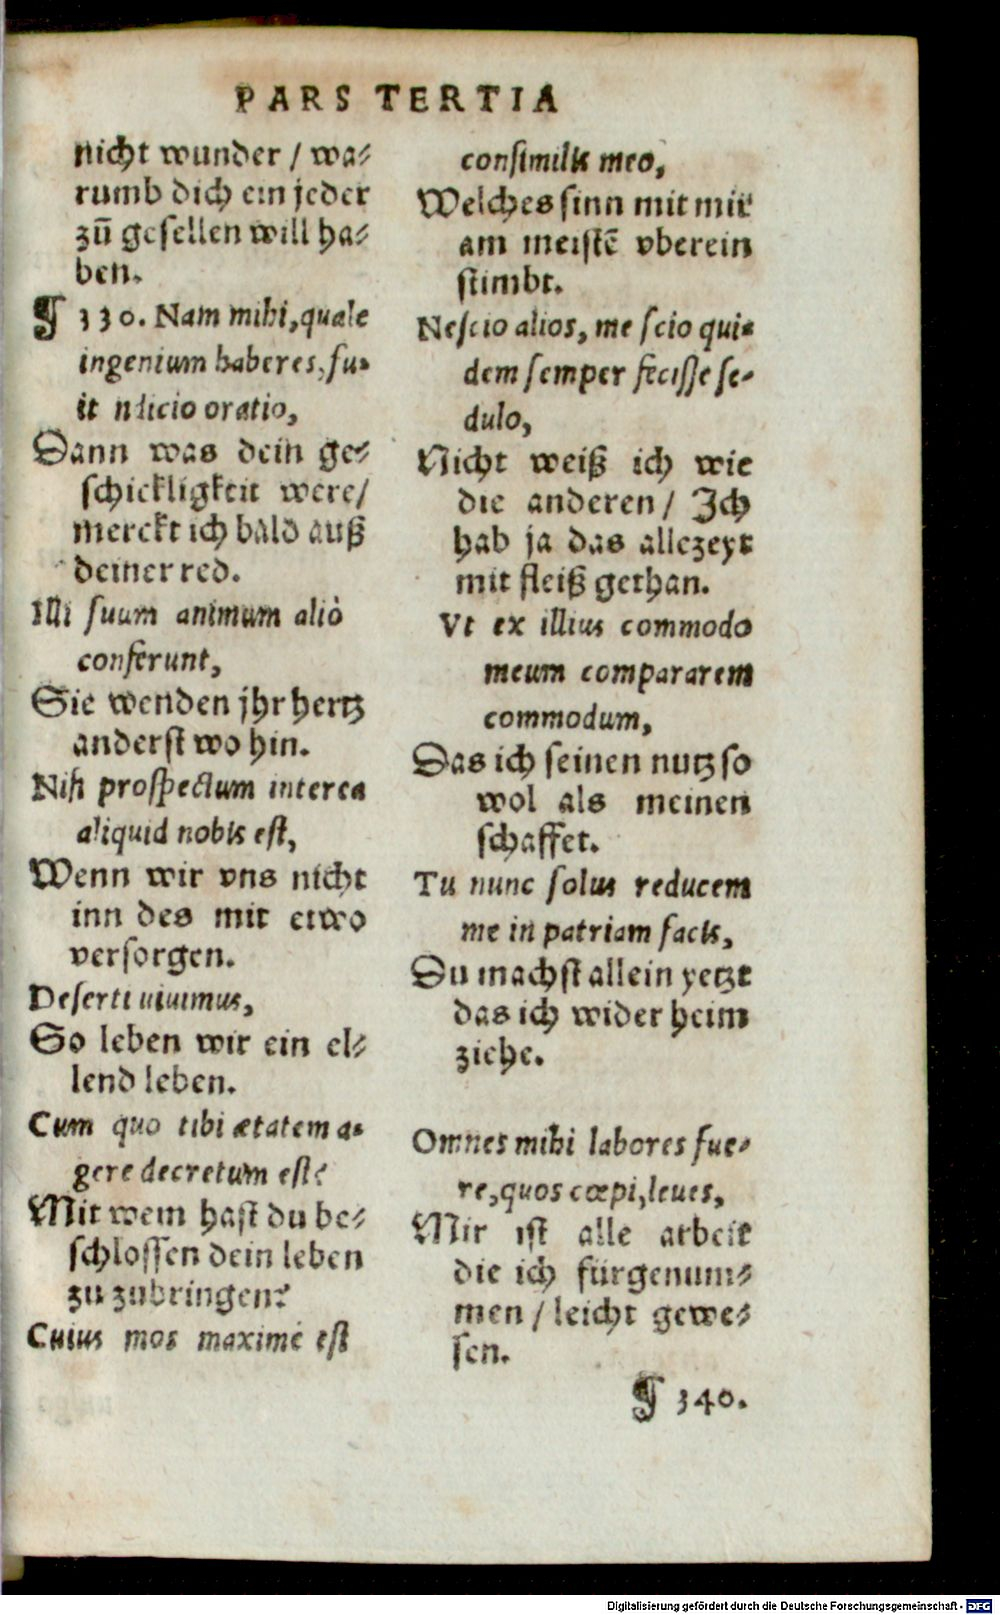 PARS TERTIA
nicht wunder / wa⸗
rumb dich ein jeder
zū gesellen will ha⸗
ben.
¶ 330. Nam mihi, quale
ingenium haberes, fu-
it oratio,
Dann was dein ge⸗
schickligkeit were/
merckt ich bald auß
deiner red.
Illi suum animum aliò
conferunt,
Sie wenden jhr hertz
anderst wo hin.
Nisi prospectum interea
aliquid nobis est,
Wenn wir vns nicht
inn des mit etwo
versorgen.
Deserti uiuimus,
So leben wir ein el⸗
lend leben.
Cum quo tibi ætatem a-
gere decretum est?
Mit wem hast du be⸗
schlossen dein leben
zu zubringen?
Cuius mos maximè est
consimilis meo,
Welches sinn mit mir
am meistē vberein
stimbt.
Nescio alios, me scio qui-
dem semper fecisse se-
dulo,
Nicht weiß ich wie
die anderen / Ich
hab ja das allezeyt
mit fleiß gethan.
Vt ex illius commodo
meum compararem
commodum,
Das ich seinen nutz so
wol als meinen
schaffet.
Tu nunc solus reducem
me in patriam facis,
Du machst allein yetzt
das ich wider heim
ziehe.
Omnes mihi labores fue-
re, quos cœpi, leues,
Mir ist alle arbeit
die ich fürgenum⸗
men / leicht gewe⸗
sen.
¶ 340.
Digitalisierung gefördert durch die Deutsche Forschungsgemeinschaft - DFG